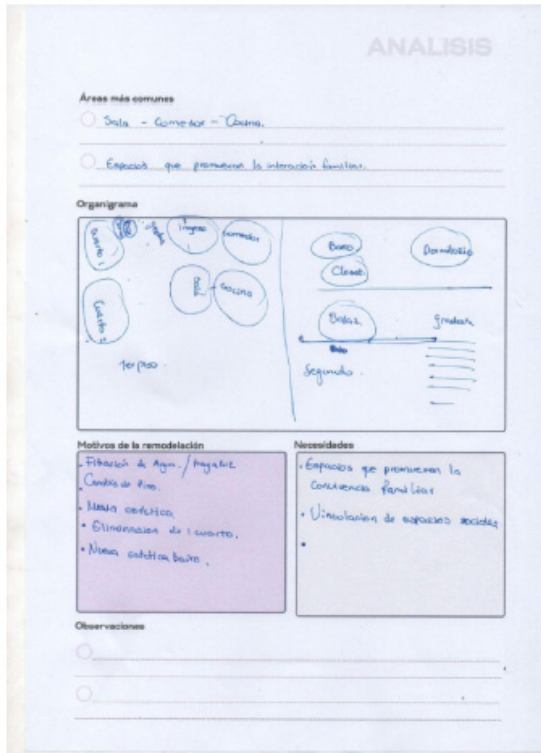 ANALISIS
Áreas más comunes
Sala - Comedor - Cocina.
Espacios que promueven la interacción familiar.
Organigrama
Cuarto 1
Ingreso
Comedor
Cuarto 2
Sala
Cocina
1er piso.
Baño
Closet
Dormitorio
gradas.
Segundo.
Motivos de la remodelación
. Filtración de Agua. / tragaluz
. Cambio de Piso.
. Nueva estética
• Eliminacion de 1 cuarto.
• Nueva estética baño.
Necesidades
• Espacios que promueven la
convivencia familiar
• Vinculacion de espacios sociales
•
Observaciones